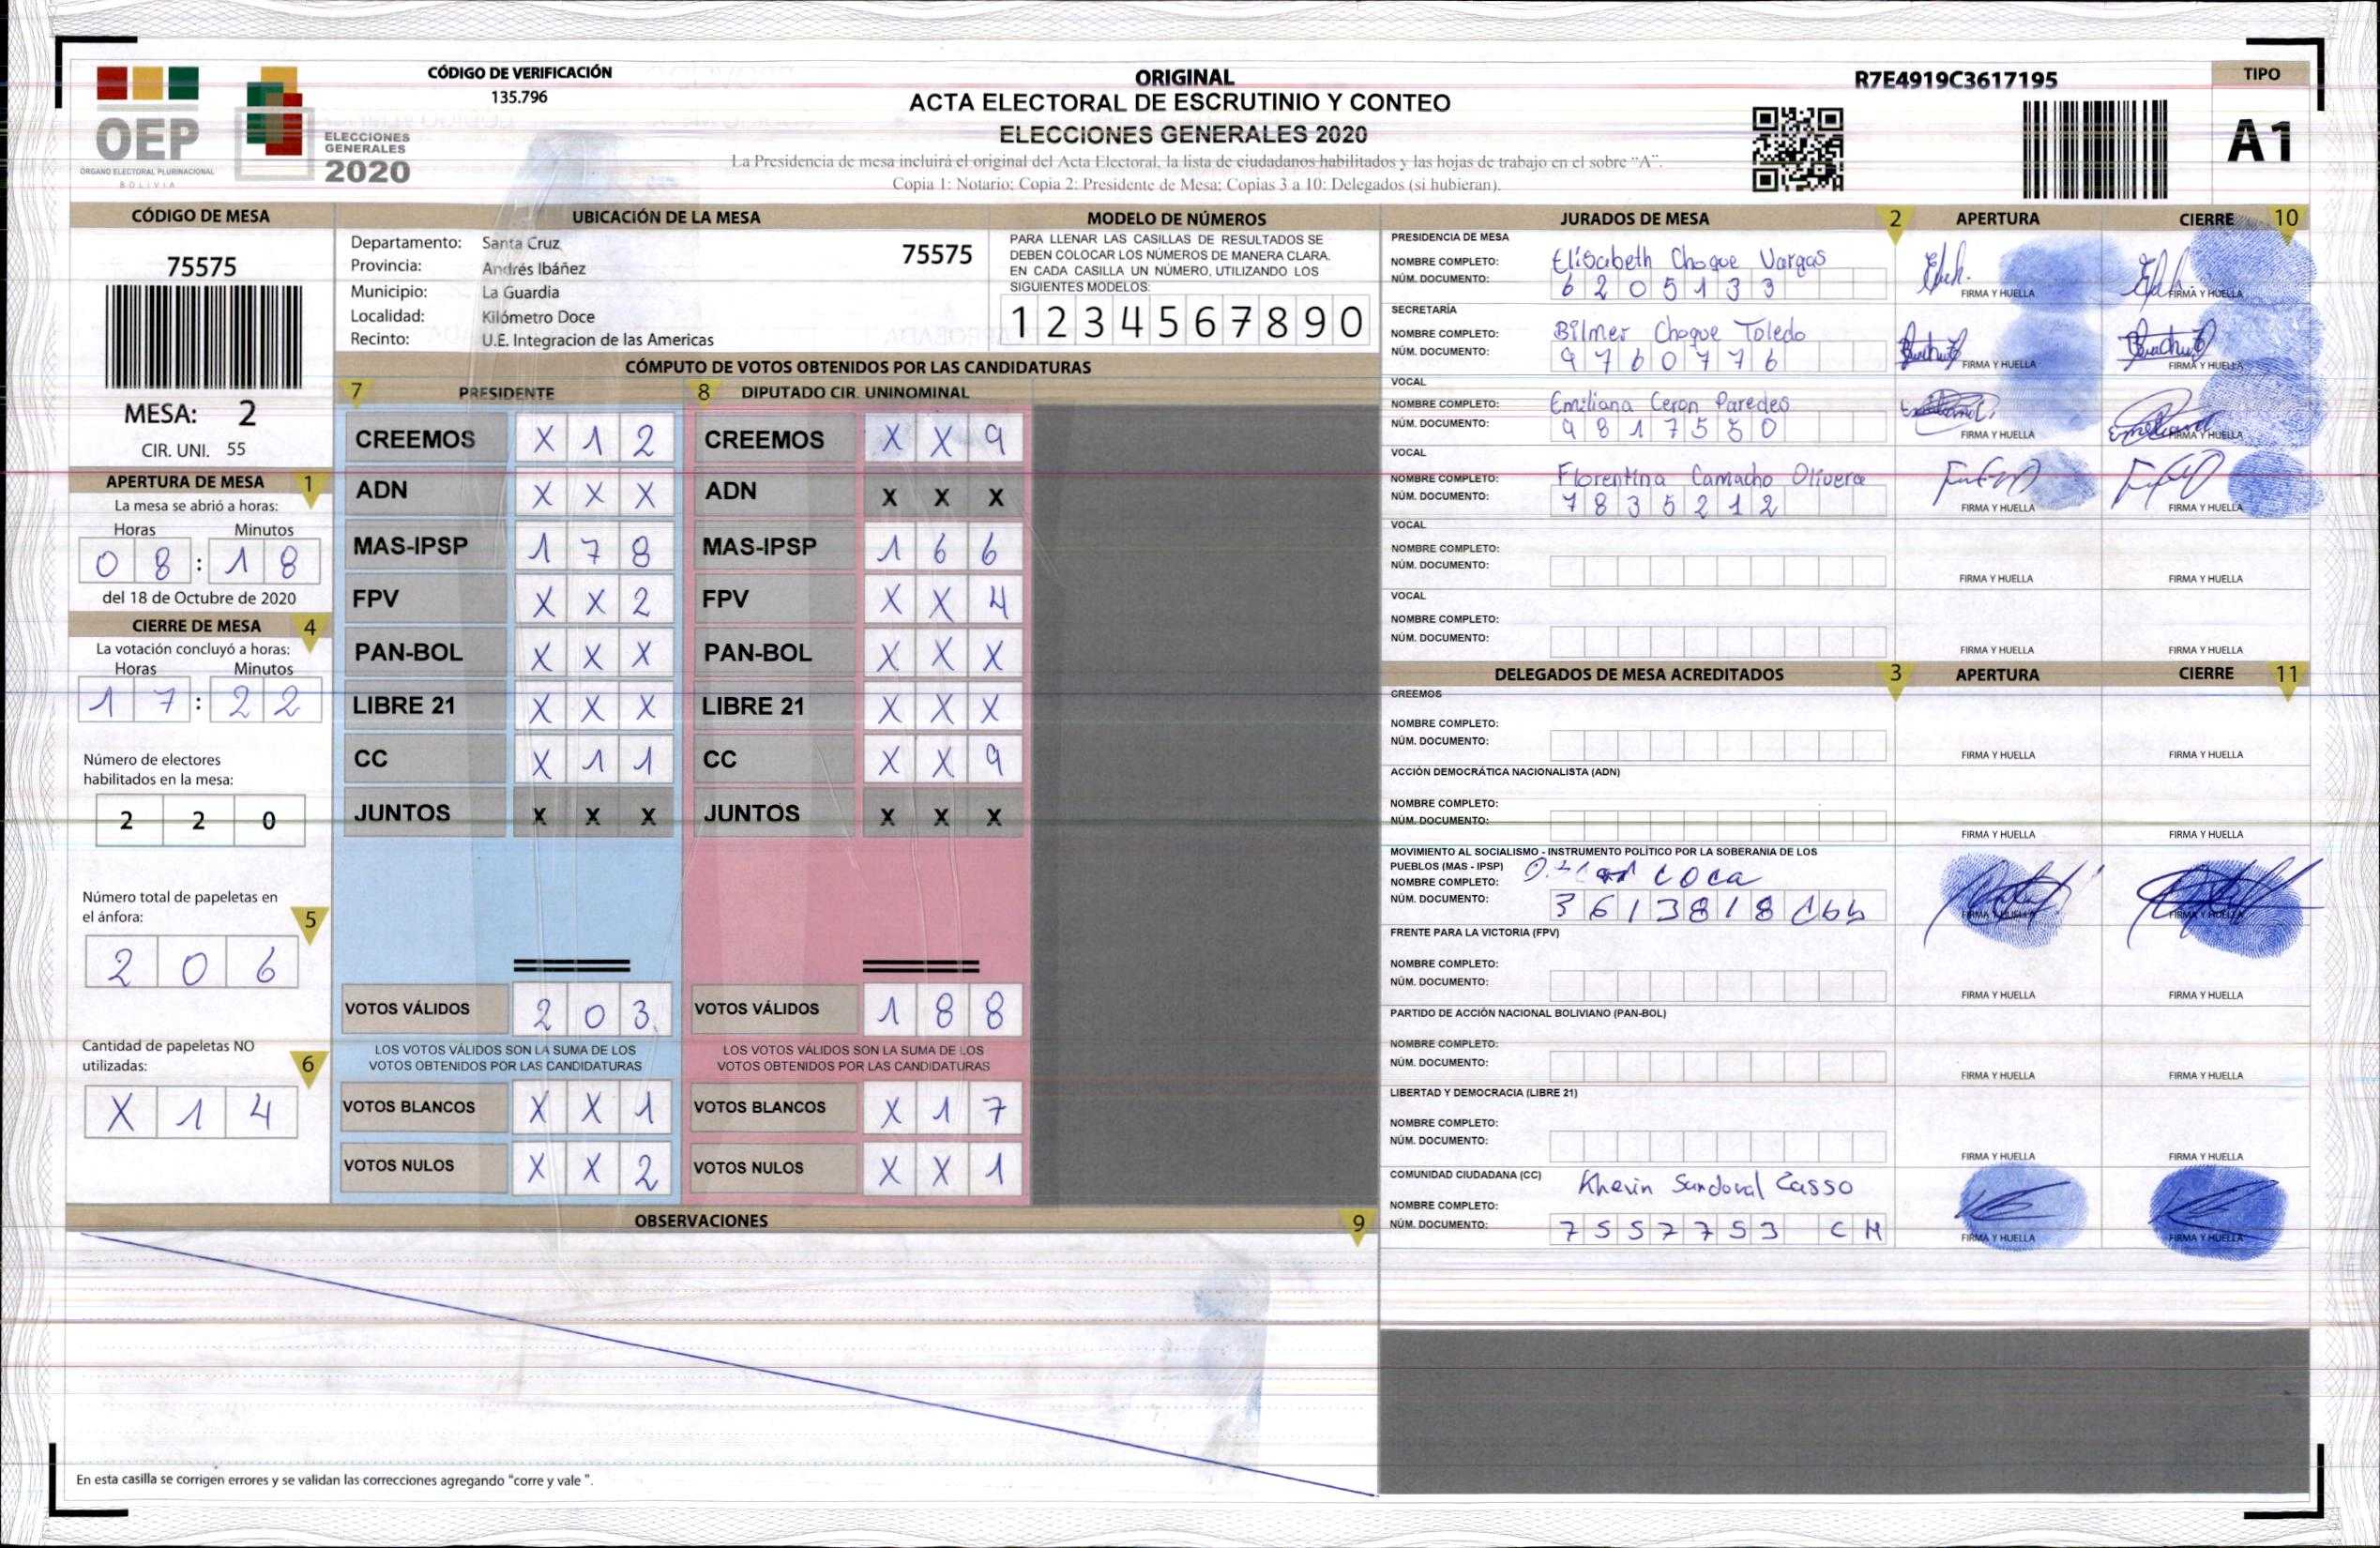 OEP
ÓRGANO ELECTORAL PLURINACIONAL
BOLIVIA
ELECCIONES
GENERALES
2020
CÓDIGO DE VERIFICACIÓN
135.796
ORIGINAL
ACTA ELECTORAL DE ESCRUTINIO Y CONTEO
ELECCIONES GENERALES 2020
La Presidencia de mesa incluirá el original del Acta Electoral, la lista de ciudadanos habilitados y las hojas de trabajo en el sobre "A".
Copia 1: Notario; Copia 2: Presidente de Mesa; Copias 3 a 10: Delegados (si hubieran).
R7E4919C3617195
TIPO
A1
CÓDIGO DE MESA
75575
MESA: 2
CIR. UNI. 55
APERTURA DE MESA 1
La mesa se abrió a horas:
Horas Minutos
0 8 : 1 8
del 18 de Octubre de 2020
CIERRE DE MESA 4
La votación concluyó a horas:
Horas Minutos
1 7 : 2 2
Número de electores
habilitados en la mesa:
2 2 0
Número total de papeletas en
el ánfora: 5
2 0 6
Cantidad de papeletas NO
utilizadas: 6
X 1 4
UBICACIÓN DE LA MESA
Departamento: Santa Cruz 75575
Provincia: Andrés Ibáñez
Municipio: La Guardia
Localidad: Kilómetro Doce
Recinto: U.E. Integracion de las Americas
MODELO DE NÚMEROS
PARA LLENAR LAS CASILLAS DE RESULTADOS SE
DEBEN COLOCAR LOS NÚMEROS DE MANERA CLARA.
EN CADA CASILLA UN NÚMERO, UTILIZANDO LOS
SIGUIENTES MODELOS:
1 2 3 4 5 6 7 8 9 0
CÓMPUTO DE VOTOS OBTENIDOS POR LAS CANDIDATURAS
7 PRESIDENTE 8 DIPUTADO CIR. UNINOMINAL
CREEMOS X 1 2 CREEMOS X X 9
ADN X X X ADN X X X
MAS-IPSP 1 7 8 MAS-IPSP 1 6 6
FPV X X 2 FPV X X 4
PAN-BOL X X X PAN-BOL X X X
LIBRE 21 X X X LIBRE 21 X X X
CC X 1 1 CC X X 9
JUNTOS X X X JUNTOS X X X
VOTOS VÁLIDOS 2 0 3 VOTOS VÁLIDOS 1 8 8
LOS VOTOS VÁLIDOS SON LA SUMA DE LOS LOS VOTOS VÁLIDOS SON LA SUMA DE LOS
VOTOS OBTENIDOS POR LAS CANDIDATURAS VOTOS OBTENIDOS POR LAS CANDIDATURAS
VOTOS BLANCOS X X 1 VOTOS BLANCOS X 1 7
VOTOS NULOS X X 2 VOTOS NULOS X X 1
OBSERVACIONES 9
En esta casilla se corrigen errores y se validan las correcciones agregando "corre y vale ".
JURADOS DE MESA 2 APERTURA CIERRE 10
PRESIDENCIA DE MESA
NOMBRE COMPLETO: Elisabeth Choque Vargas
NÚM. DOCUMENTO: 6 2 0 5 1 3 3 FIRMA Y HUELLA FIRMA Y HUELLA
SECRETARÍA
NOMBRE COMPLETO: Bilmer Choque Toledo
NÚM. DOCUMENTO: 9 7 6 0 7 7 6 FIRMA Y HUELLA FIRMA Y HUELLA
VOCAL
NOMBRE COMPLETO: Emiliana Ceron Paredes
NÚM. DOCUMENTO: 9 8 1 7 5 5 0 FIRMA Y HUELLA FIRMA Y HUELLA
VOCAL
NOMBRE COMPLETO: Florentina Camacho Olivera
NÚM. DOCUMENTO: 7 8 3 5 2 1 2 FIRMA Y HUELLA FIRMA Y HUELLA
VOCAL
NOMBRE COMPLETO:
NÚM. DOCUMENTO: FIRMA Y HUELLA FIRMA Y HUELLA
VOCAL
NOMBRE COMPLETO:
NÚM. DOCUMENTO: FIRMA Y HUELLA FIRMA Y HUELLA
DELEGADOS DE MESA ACREDITADOS 3 APERTURA CIERRE 11
CREEMOS
NOMBRE COMPLETO:
NÚM. DOCUMENTO: FIRMA Y HUELLA FIRMA Y HUELLA
ACCIÓN DEMOCRÁTICA NACIONALISTA (ADN)
NOMBRE COMPLETO:
NÚM. DOCUMENTO: FIRMA Y HUELLA FIRMA Y HUELLA
MOVIMIENTO AL SOCIALISMO - INSTRUMENTO POLÍTICO POR LA SOBERANIA DE LOS
PUEBLOS (MAS - IPSP)
NOMBRE COMPLETO: coca
NÚM. DOCUMENTO: 3 6 1 3 8 1 8 Cbb FIRMA Y HUELLA FIRMA Y HUELLA
FRENTE PARA LA VICTORIA (FPV)
NOMBRE COMPLETO:
NÚM. DOCUMENTO: FIRMA Y HUELLA FIRMA Y HUELLA
PARTIDO DE ACCIÓN NACIONAL BOLIVIANO (PAN-BOL)
NOMBRE COMPLETO:
NÚM. DOCUMENTO: FIRMA Y HUELLA FIRMA Y HUELLA
LIBERTAD Y DEMOCRACIA (LIBRE 21)
NOMBRE COMPLETO:
NÚM. DOCUMENTO: FIRMA Y HUELLA FIRMA Y HUELLA
COMUNIDAD CIUDADANA (CC) Khevin Sandoval Casso
NOMBRE COMPLETO:
NÚM. DOCUMENTO: 7 5 5 7 7 5 3 C H FIRMA Y HUELLA FIRMA Y HUELLA